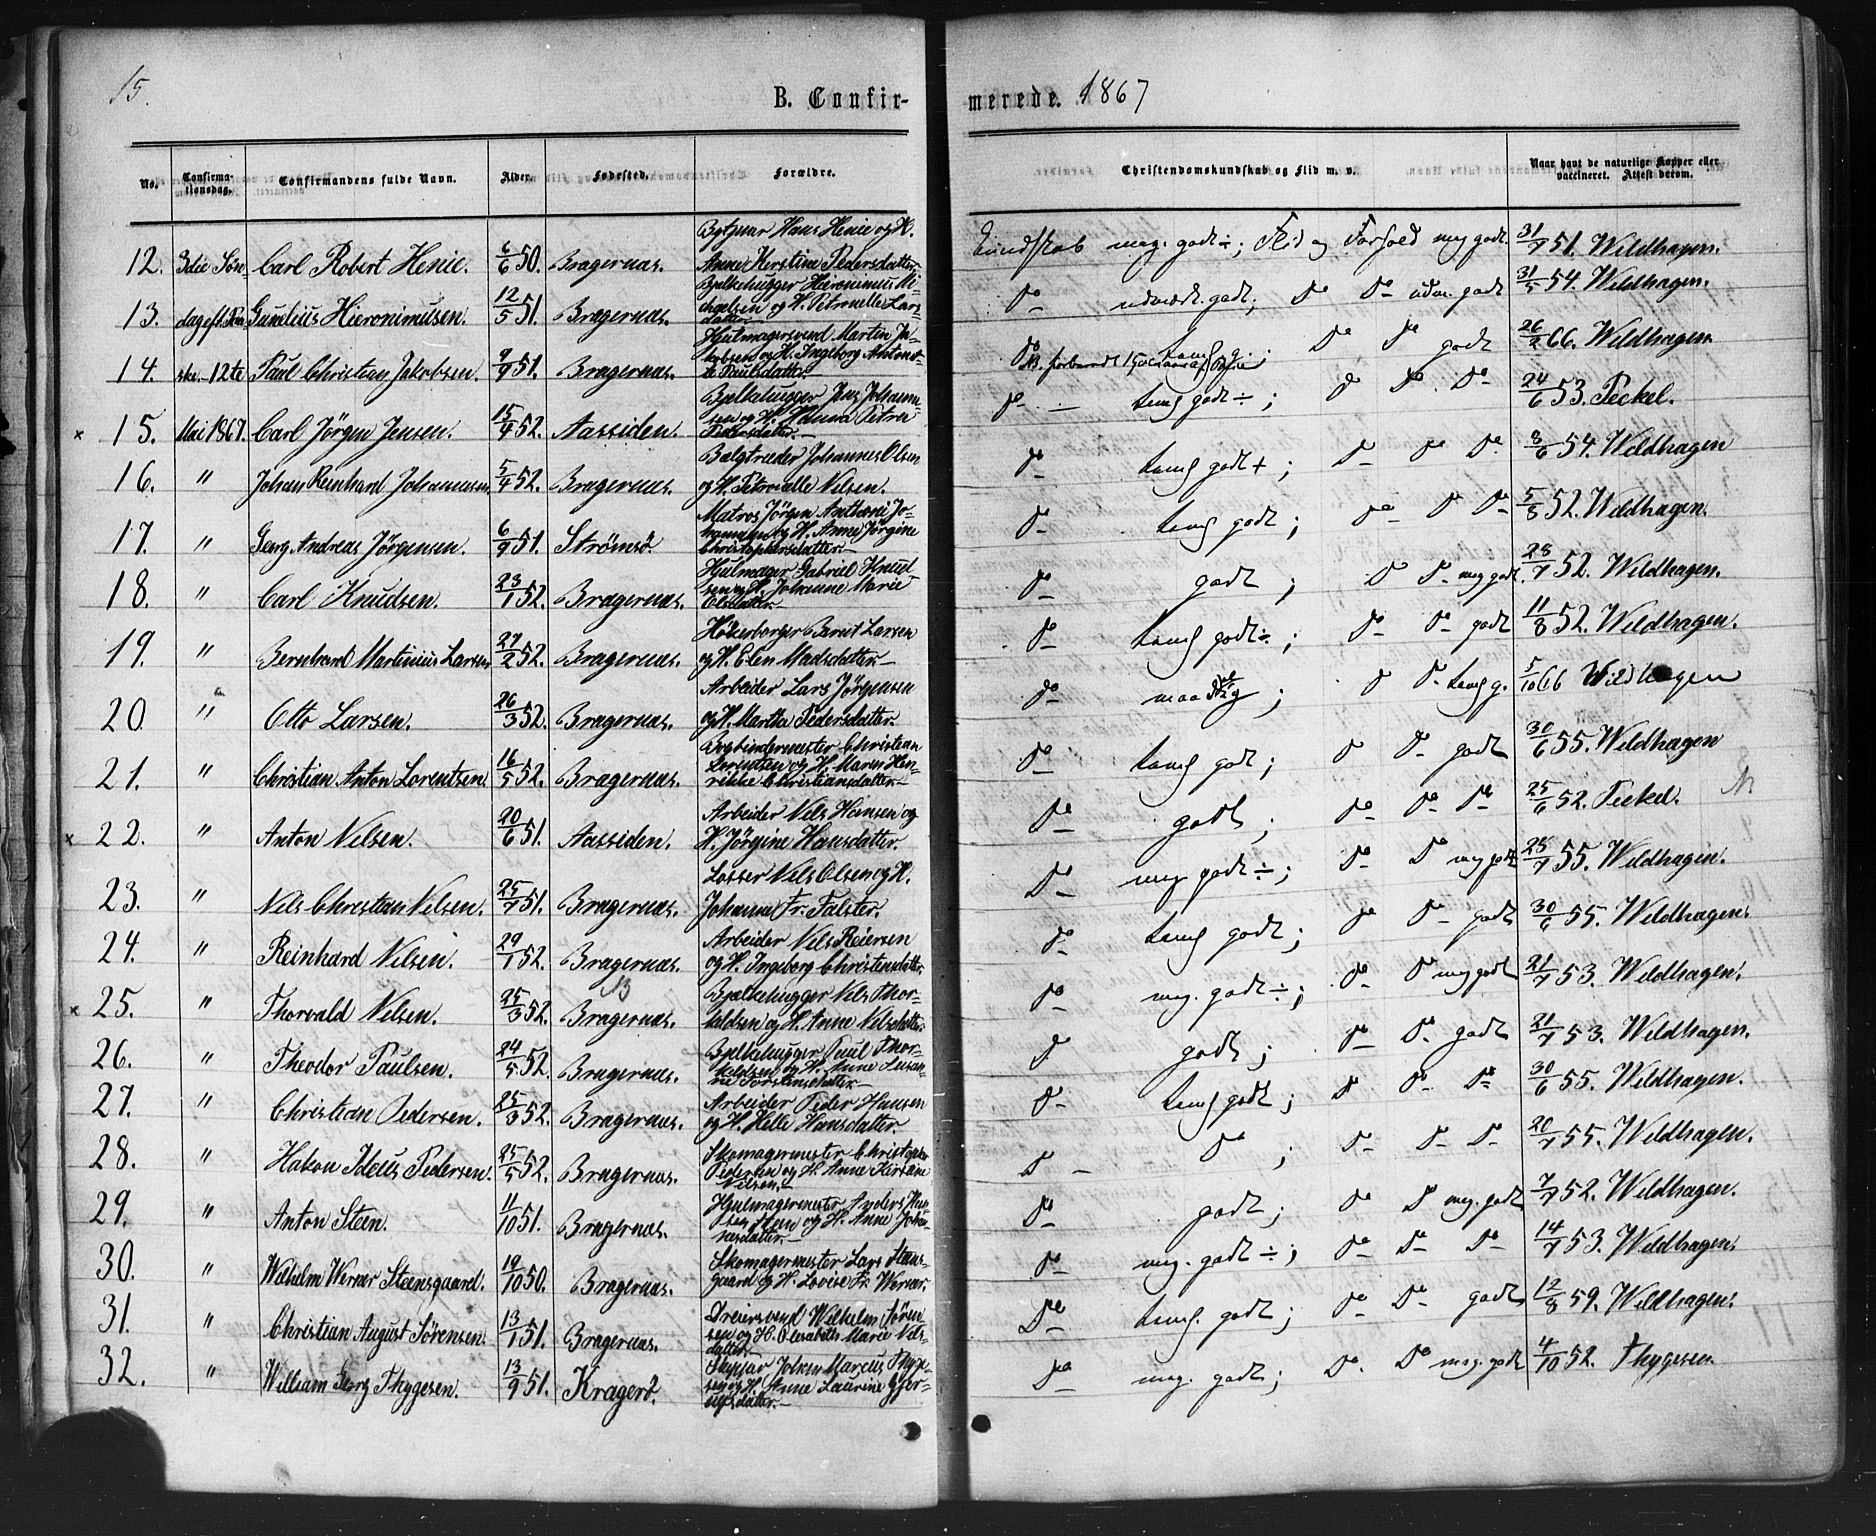 15.
B. Confirmerede. 1867
No. Confirmationsdag. Confirmandens fulde Navn. Alder. Fødested. Forældre. Christendomskundskab og Flid m. v. Naar havt de naturlige Kopper eller vaccineret. Attest derom.
12. 3die Søn- Carl Robert Henie. 6/6 50. Bragernæs. Hans Henie og H. Anne Kerstine Pedersdatter. Kundskab meg. godt ÷; Flid og Forhold meg godt. 31/7 51. Wildhagen.
13. dag eft. Paa- Gunelius Hieronimusen. 12/5 51. Bragernæs. Bjelkehugger Hieronimus Michgelsen og H. Petronelle Larsdatter. Do udmærk. godt; Do Do udm. godt 31/5 54. Wildhagen.
14. ske - 12te Paul Christian Jakobsen. 9/9 51. Bragernæs. Hjulmagersvend Martin Jakobsen og H. Ingeborg Paulsdatter. Do temg g.; Do Do godt 26/2 66. Wildhagen.
x 15. Mai 1867. Carl Jörgen Jensen. 15/4 52. Aassiden. Bjelkehugger Jens Johannsen og H. Hanna Petrea Pedersdatter. Do temg godt ÷; Do Do Do 24/6 53. Peckel.
16. " Johan Reinhard Johannesen. 5/4 52. Bragernæs. Bælgtræder Johannes Olsen og H. Petronelle Nilsen. Do temg godt +; Do Do Do 8/6 54. Wildhagen
17. " Georg Andreas Jörgensen. 6/9 51. Strømsö. Matros Jörgen Anthoni Johannesen og H. Anne Jörgine Christophersdatter. Do temg godt; Do Do Do 5/8 52. Wildhagen.
18. " Carl Knudsen. 23/1 52. Bragernæs. Hjulmager Gabriel Knudsen og H. Johanne Marie Olsdatter. Do godt; Do Do meg godt. 28/7 52. Wildhagen.
19. " Bernhard Martinius Larsen. 27/2 52. Bragernæs. Hökerborger Berent Larsen og H. Elen Madsdatter. Do temg godt ÷; Do Do godt 11/8 52. Wildhagen.
20. " Otto Larsen. 26/3 52. Bragernæs. Arbeider Lars Jörgensen og H. Martha Pedersdatter. Do maadelig; Do Do temg g. 5/10 66 Wildhagen
21. " Christian Anton Lorentsen. 16/5 52. Bragernæs. Bogbindermester Christian Lorentsen og H. Maren Henrikke Christiansdatter. Do temg godt; Do Do godt 30/6 55. Wildhagen
x 22. " Anton Nilsen. 20/6 51. Aassiden. Arbeider Nils Hansen og H. Jörgine Hansdatter. Do godt; Do Do Do 25/6 52. Peckel.
23. " Nils Christian Nilsen. 25/7 51. Bragernæs. Losser Nils Olsen og H. Johanna Fr. Falster. Do meg godt ÷; Do Do meg godt 25/7 55. Wildhagen.
24. " Reinhard Nilsen. 29/1 52. Bragernæs. Arbeider Nils Reiersen og H. Ingeborg Christensdatter. Do temg godt; Do Do godt 30/6 55. Wildhagen.
x 25. " Thorvald Nilsen. 25/3 52. Bragernæs. Bjelkehugger Nils Thorvaldsen og H. Anne Nilsdatter. Do meg. godt ÷; Do Do meg godt 21/7 53. Wildhagen.
26. " Theodor Paulsen. 24/5 52. Bragernæs. Bjelkehugger Paul Thorvaldsen og H. Anne Susanne Torstensdatter. Do godt; Do Do godt 21/7 53. Wildhagen.
27. " Christian Pedersen. 25/3 52. Bragernæs. Arbeider Peder Hansen og H. Helle Hansdatter. Do temg godt; Do Do Do 30/6 55. Wildhagen.
28. " Hakon Ideus Pedersen. 25/5 52. Bragernæs. Skomagermester Christopher Pedersen og H. Anne Kirstine Nilsen. Do Do; Do Do Do 20/7 55. Wildhagen.
29. " Anton Steen. 11/10 51. Bragernæs. Hjulmagermester Anders Hansen Steen og H. Anne Johannesdatter. Do godt; Do Do meg. godt 7/7 52. Wildhagen.
30. " Wilhelm Werner Steensgaard. 19/10 50. Bragernæs. Skomagermester Lars Stensgaard og H. Lovise Fr. Werner. Do meg. godt ÷; Do Do Do 14/7 53. Wildhagen.
31. " Christian August Sörensen. 13/1 51. Bragernæs. Dreiersvend Wilhelm Sörensen og H. Elisabeth Marie Nilsdatter. Do temg. godt; Do Do godt 12/8 59. Wildhagen.
32. " William Georg Thygesen. 13/9 51. Kragerö. Skipper Johan Marcus Thygesen og H. Anne Laurine Gjerulfsdatter. Do meg. godt; Do Do meg. godt 4/10 52. Thygesen.